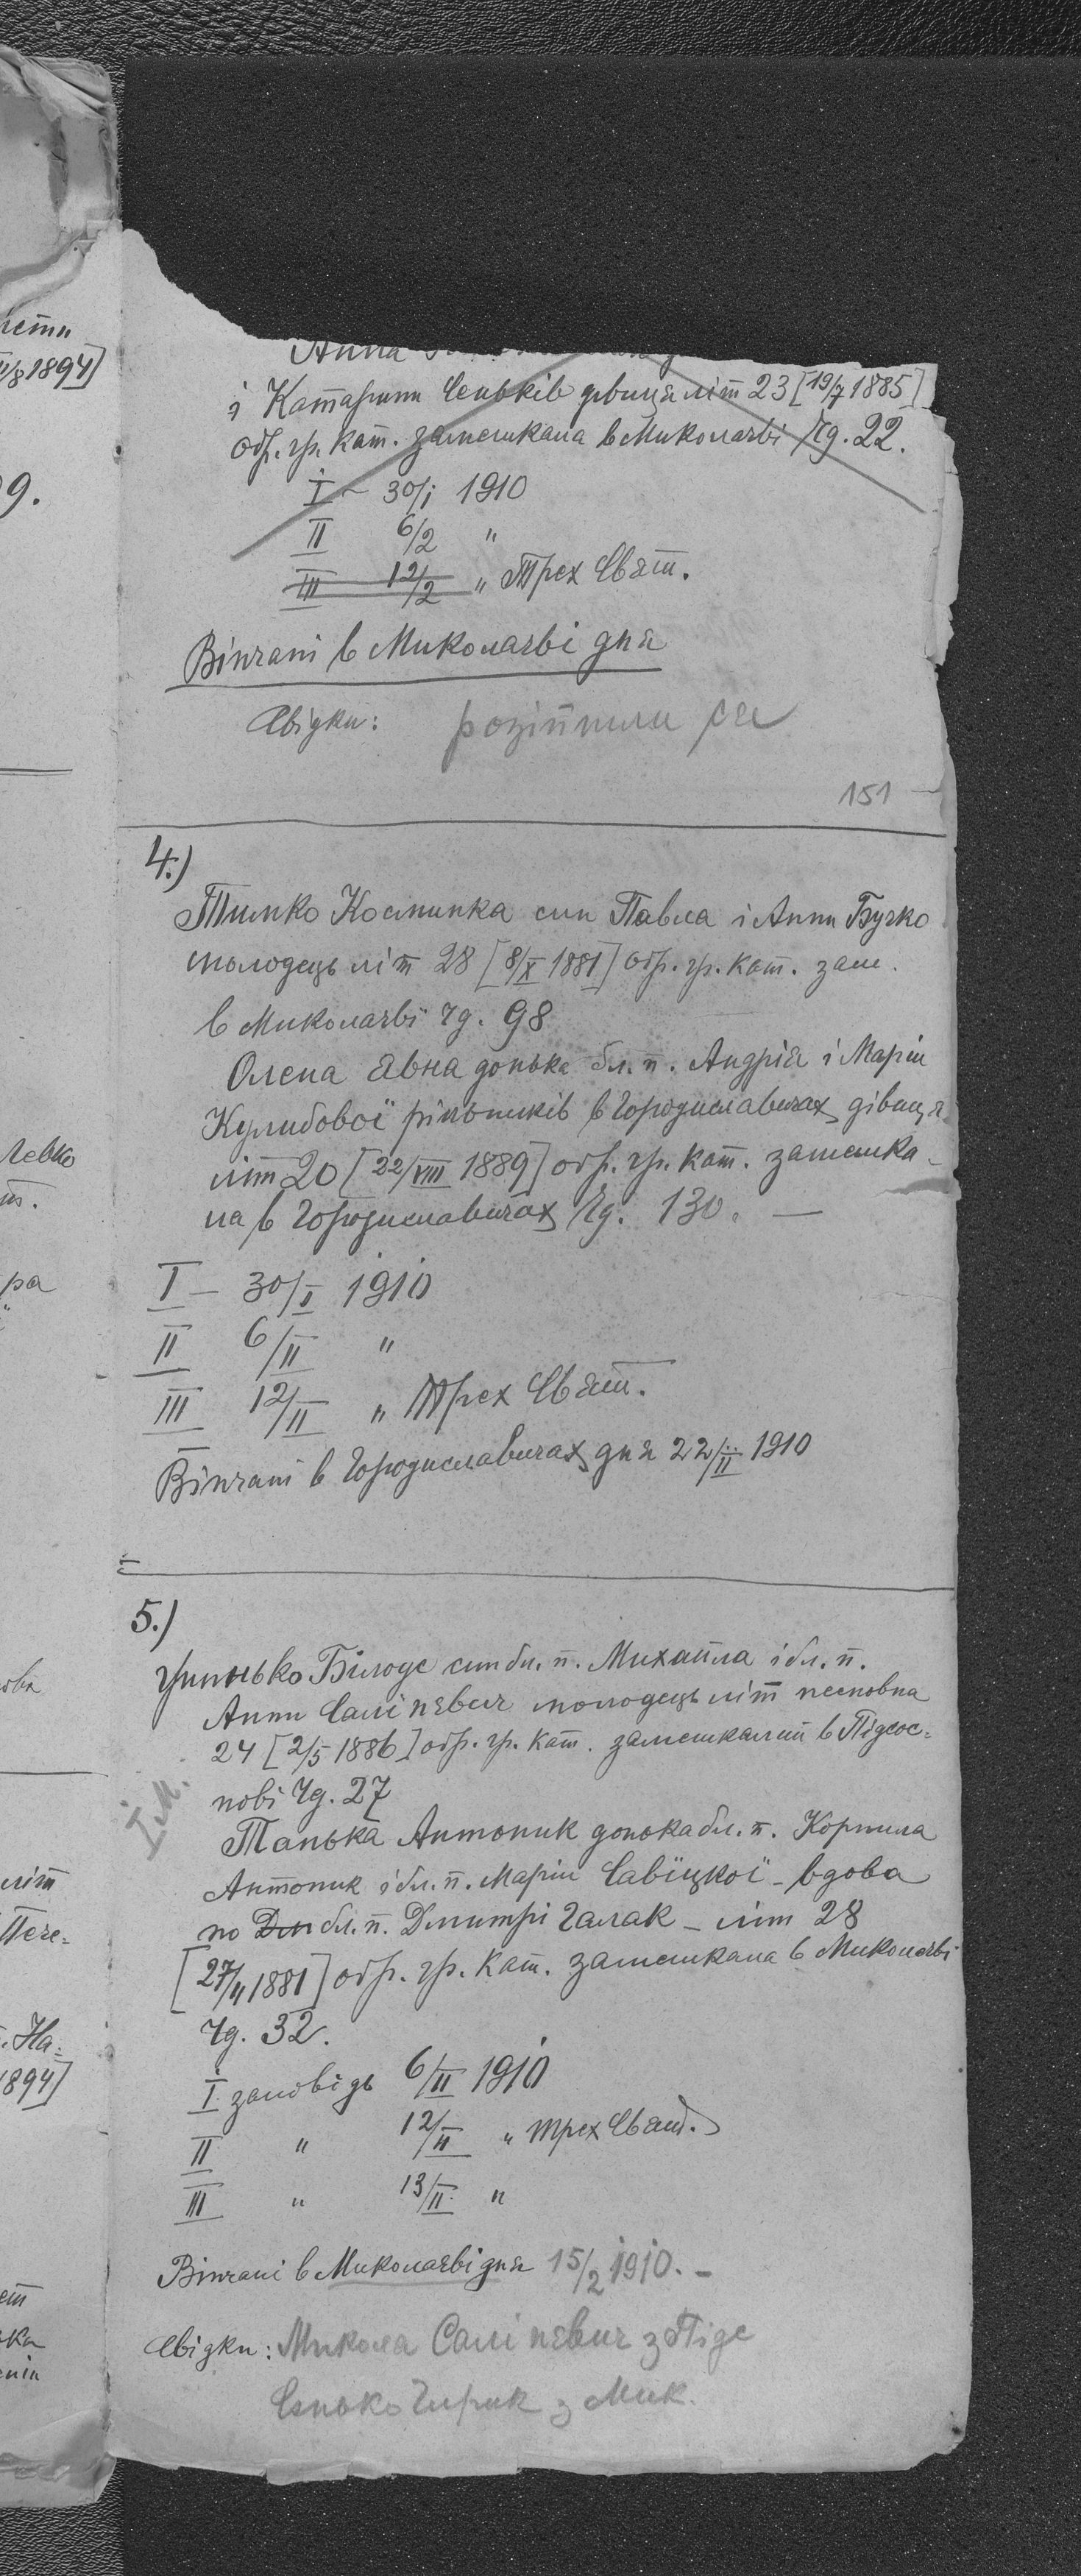 Анна
і Катарини Сеньків дівиця літ 23 [19/7 1885]
обр. гр. кат. замешкала в Миколаєві Чд. 22.
I – 30/I 1910
II 6/2 "
III 12/2 " Трех Свят.
Вінчані в Миколаєві дня
Свідки: розійшли ся
151
4.)
Тимко Космина син Павла і Анни Бучко
молодець літ 28 [8/X 1881] обр. гр. кат. зам.
в Миколаєві чд. 98
Олена Явна донька бл. п. Андрія і Марії
Кулибової рільників в Городиславичах дівиця
літ 20 [22/VIII 1889] обр. гр. кат. замешка-
ла в Городиславичах Чд. 130. —
I – 30/I 1910
II 6/II "
III 12/II " Трех Свят.
Вінчані в Городиславичах дня 22/II 1910
5.)
Гринько Білоус син бл. п. Михайла і бл. п.
Анни Салі молодець літ несповна
24 [2/5 1886] обр. гр. кат. замешкалий в Підсос=
нові Чд. 27
I. М.
Танька Антоник донька бл. п. Корнила
Антоник і бл. п. Марії Савіцкої – вдова
по Дм бл. п. Дмитрі Галак – літ 28
[27/II 1881] обр. гр. кат. замешкала в Миколаєві
Чд. 32.
I заповідь 6/II 1910
II " 12/II " Трех Свят.
III " 13/II "
Вінчані в Миколаєві дня 15/2 1910. –
Свідки: Микола з Підс
Сенько з Мик.
летни
1894]
9.
Левко
ра
ова
літ
Пече=
. На=
1894]
ка